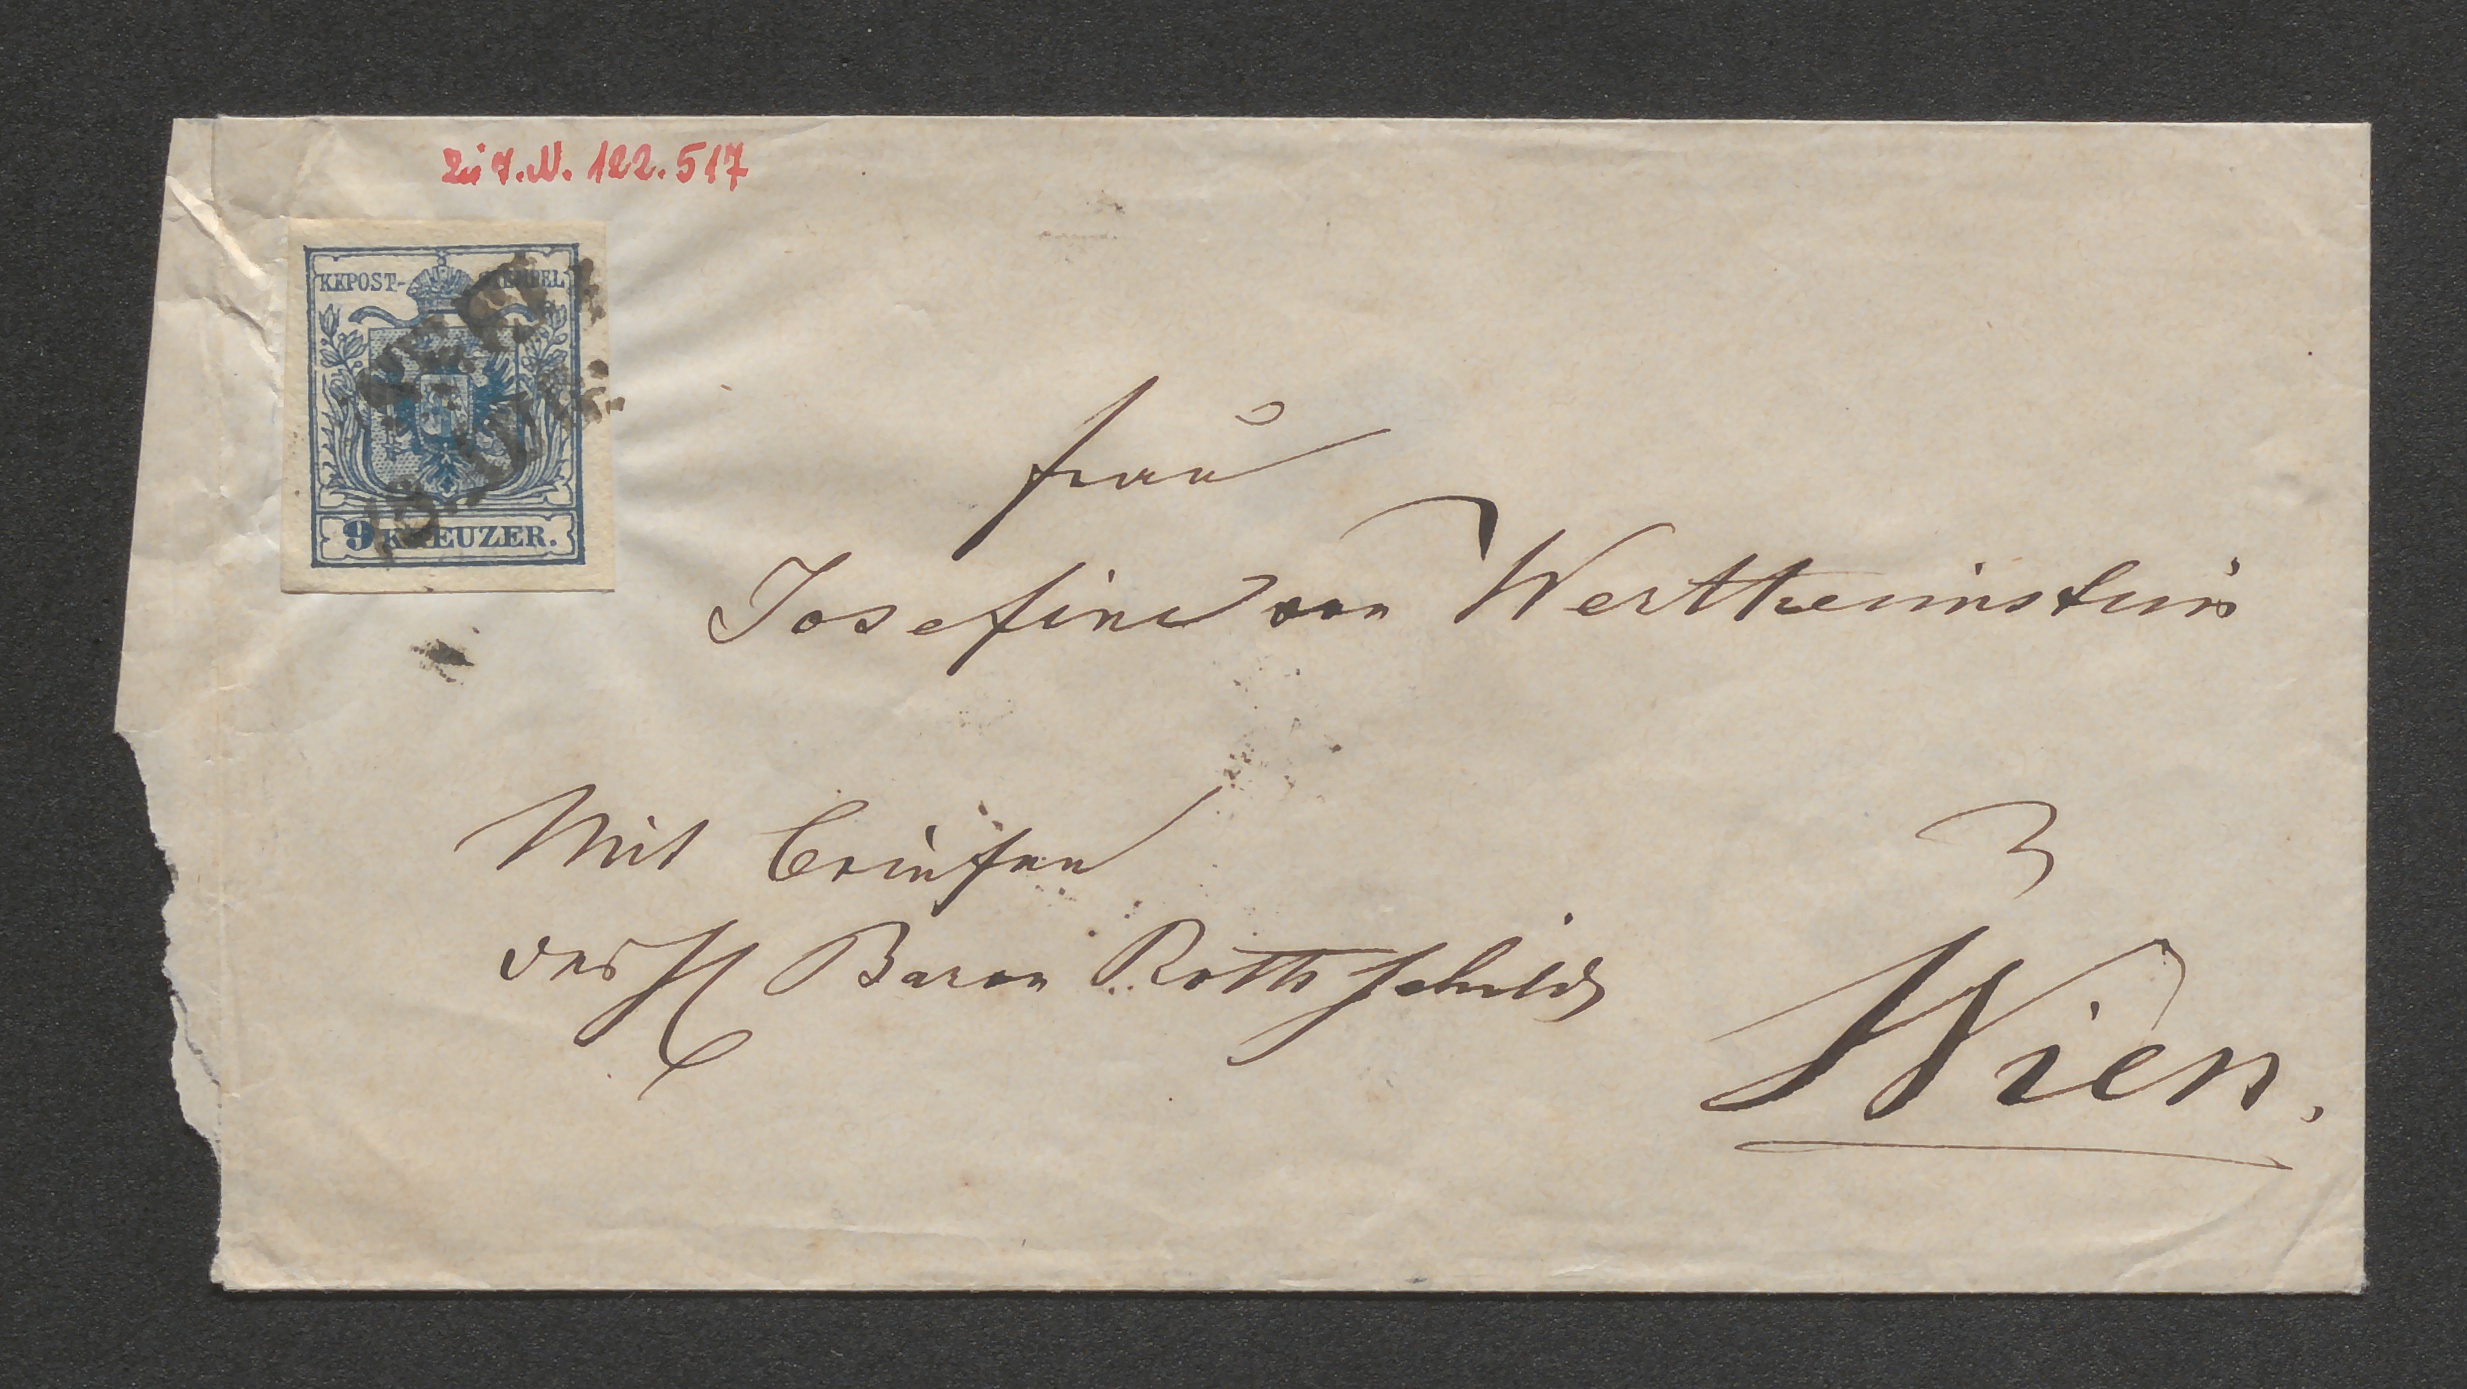 Zu I.N. 122.517
KKPOST-STEMPEL
9 KREUZER.
Frau
Josefine von Wertheimstein
Mit Briefen
des H Baron Rothschild
Wien.